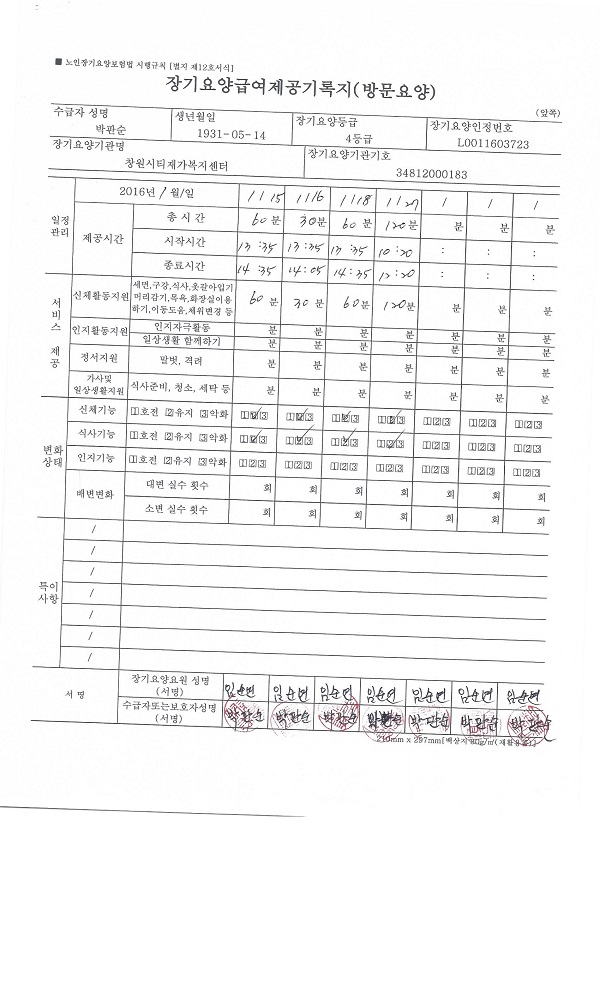 ■ 노인장기요양보험법 시행규칙 [별지 제12호서식]
장기요양급여제공기록지(방문요양)
(앞쪽)
수급자 성명 생년월일 장기요양등급 장기요양인정번호
박판순 1931-05-14 4등급 L0011603723
장기요양기관명 장기요양기관기호
창원시티재가복지센터 34812000183
일정관리 제공시간 2016년/월/일 1/15 1/16 1/18 1/27 / / /
총 시 간 60분 30분 60분 120분 분 분 분
시작시간 13:35 13:35 13:35 10:20 : : :
종료시간 14:35 14:05 14:35 12:20 : : :
서비스 제공
신체활동지원 세면,구강,식사,옷갈아입기 머리감기,목욕,화장실이용 하기,이동도움,체위변경 등 60분 30분 60분 120분 분 분 분
인지활동지원 인지자극활동 분 분 분 분 분 분 분
일상생활 함께하기 분 분 분 분 분 분 분
정서지원 말벗, 격려 분 분 분 분 분 분 분
가사및 일상생활지원 식사준비, 청소, 세탁 등 분 분 분 분 분 분 분
변화상태
신체기능 1호전 2유지 3악화 123 123 123 123 123 123 123
식사기능 1호전 2유지 3악화 123 123 123 123 123 123 123
인지기능 1호전 2유지 3악화 123 123 123 123 123 123 123
배변변화 대변 실수 횟수 회 회 회 회 회 회 회
소변 실수 횟수 회 회 회 회 회 회 회
특이사항
/
/
/
/
/
/
/
서 명 장기요양요원 성명 (서명) 임순연 임순연 임순연 임순연 임순연 임순연 임순연
수급자또는보호자성명 (서명) 박판순 박판순 박판순 박판순 박판순 박판순 박판순
210mm x 297mm[백상지 80g/㎡(재활용품)]